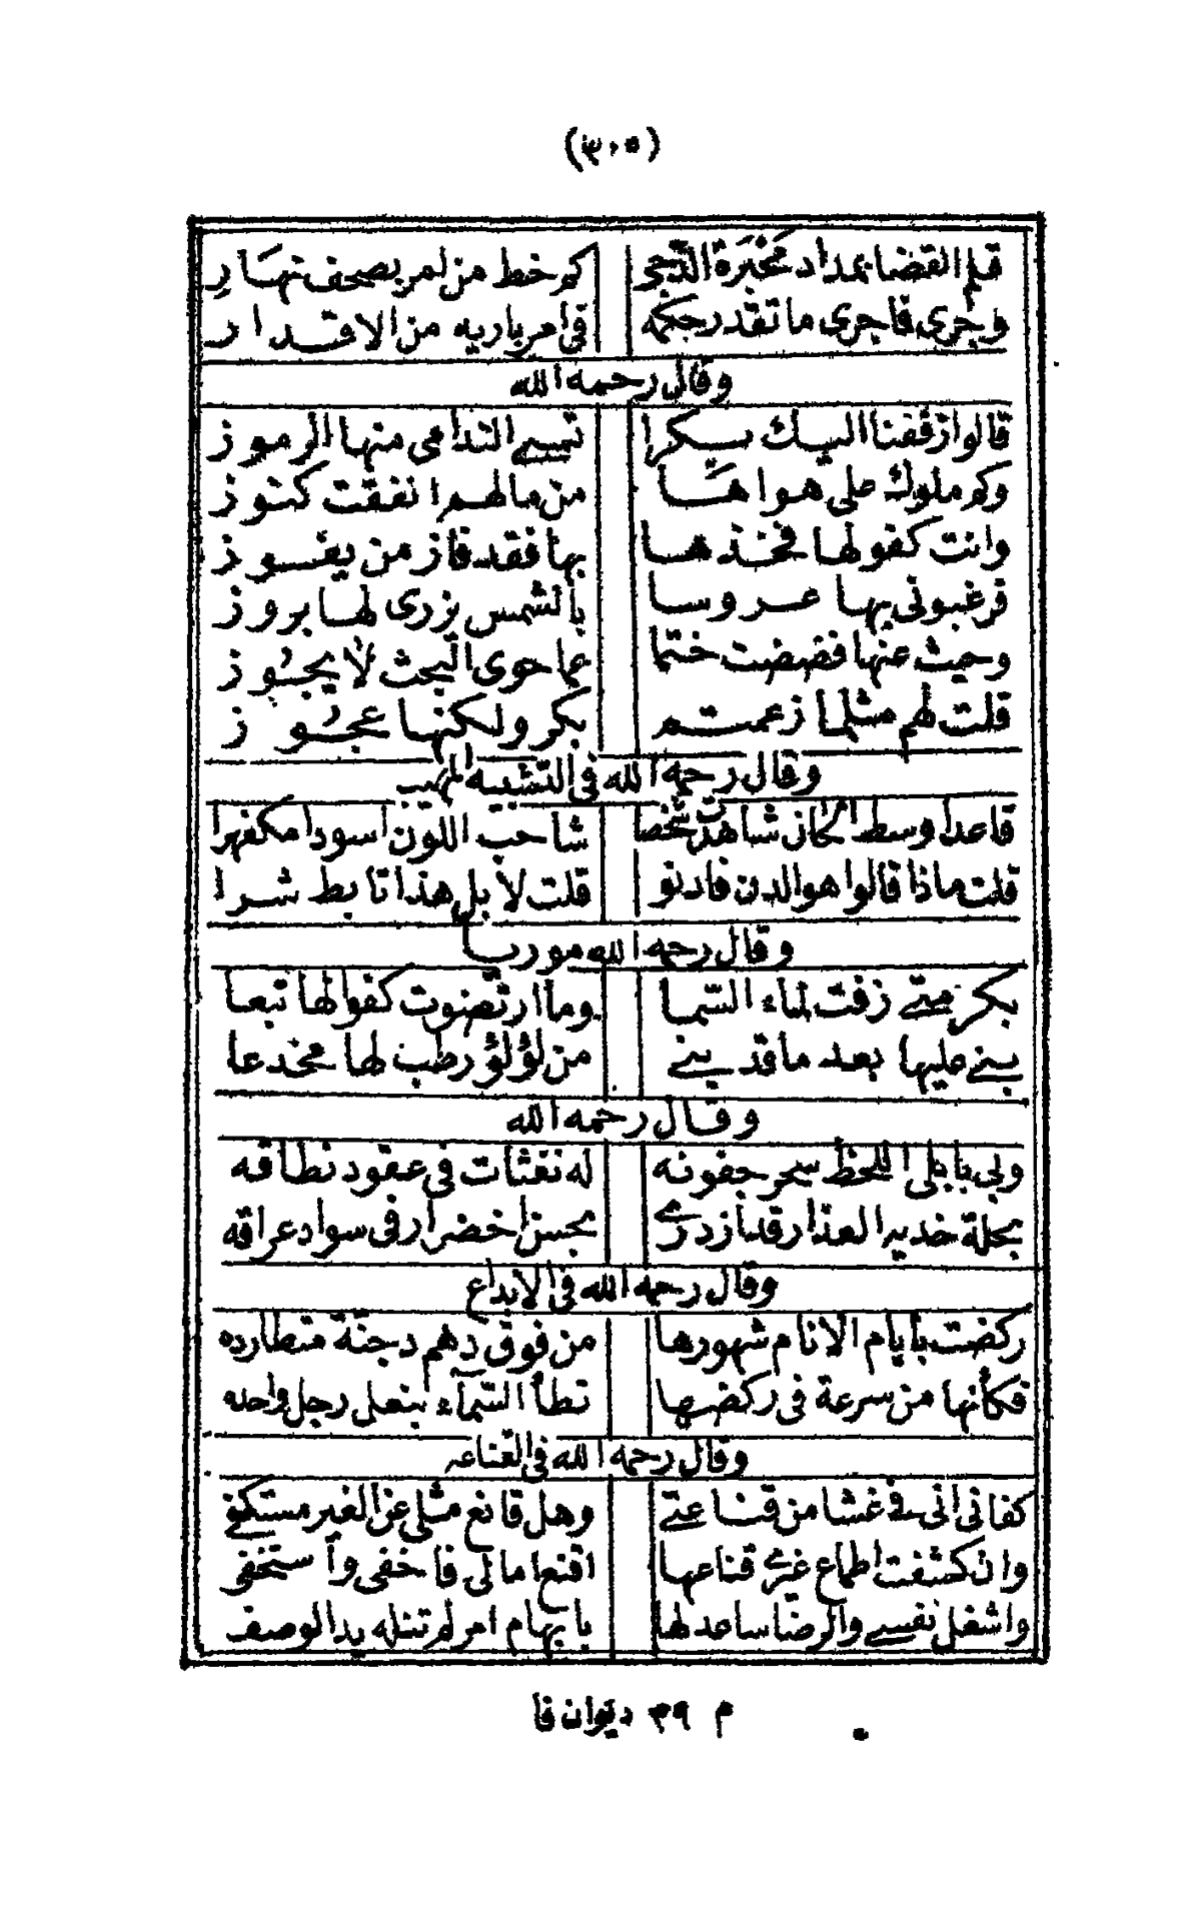 (٣٠٥)
قلم القضا بمداد محبرة الدجى كم خط من لمر بصحف نهار
وجرى فاجرى ما تقدر حكمه في امر باريه من الاقتدار
وقال رحمه الله
قالوا ازففنا اليك بكرا تمسي الندامى منها الرموز
وكم ملوك على هواها من مالهم انفقت كنوز
وانت كفو لها فخذها بها فقد فاز من يفوز
فرغبوني بها عروسا بالشمس يزرى لها بروز
وحيث عنها فضضت ختما عما حوى البحث لا يجوز
قلت لهم مثلما زعمتم بكر ولكنها عجوز
وقال رحمه الله في التشبيه المهيب
قاعدا وسط المكانى شاهدت شخصا شاحب اللون اسودا مكفهرا
قلت ماذا قالوا هو الدن فادنو قلت لا بل هذا تابط شرا
وقال رحمه الله موريا
بكر متى زفت لماء السما وما ارتضوت كفوا لها تبعا
يبنى عليها بعد ما قد بنى من لؤلؤ رطب لها مخدعا
وقال رحمه الله
وبي بابلى اللحظ سحر جفونه له نفثات في عقود نطاقه
بحلة خديه العذار قد ازدرى بحسن اخضرار في سواد عراقه
وقال رحمه الله في الابداع
ركضت بأيام الانام شهورها من فوق دهم دجنة متطارده
فكأنها من سرعة في ركضها تطأ السمآء بنعل رجل واحده
وقال رحمه الله في القناعه
كفاني اني في غشا من قناعتي وهل قانع مثلي عن الغير مستكفي
وان كشفت اطماع غيري قناعها اقنعا مالي فاخفى وأستخفي
واشغل نفسي والرضا ساعد لها بابهام امر لم تنله يد الوصف
م ٣٩ ديوان فا